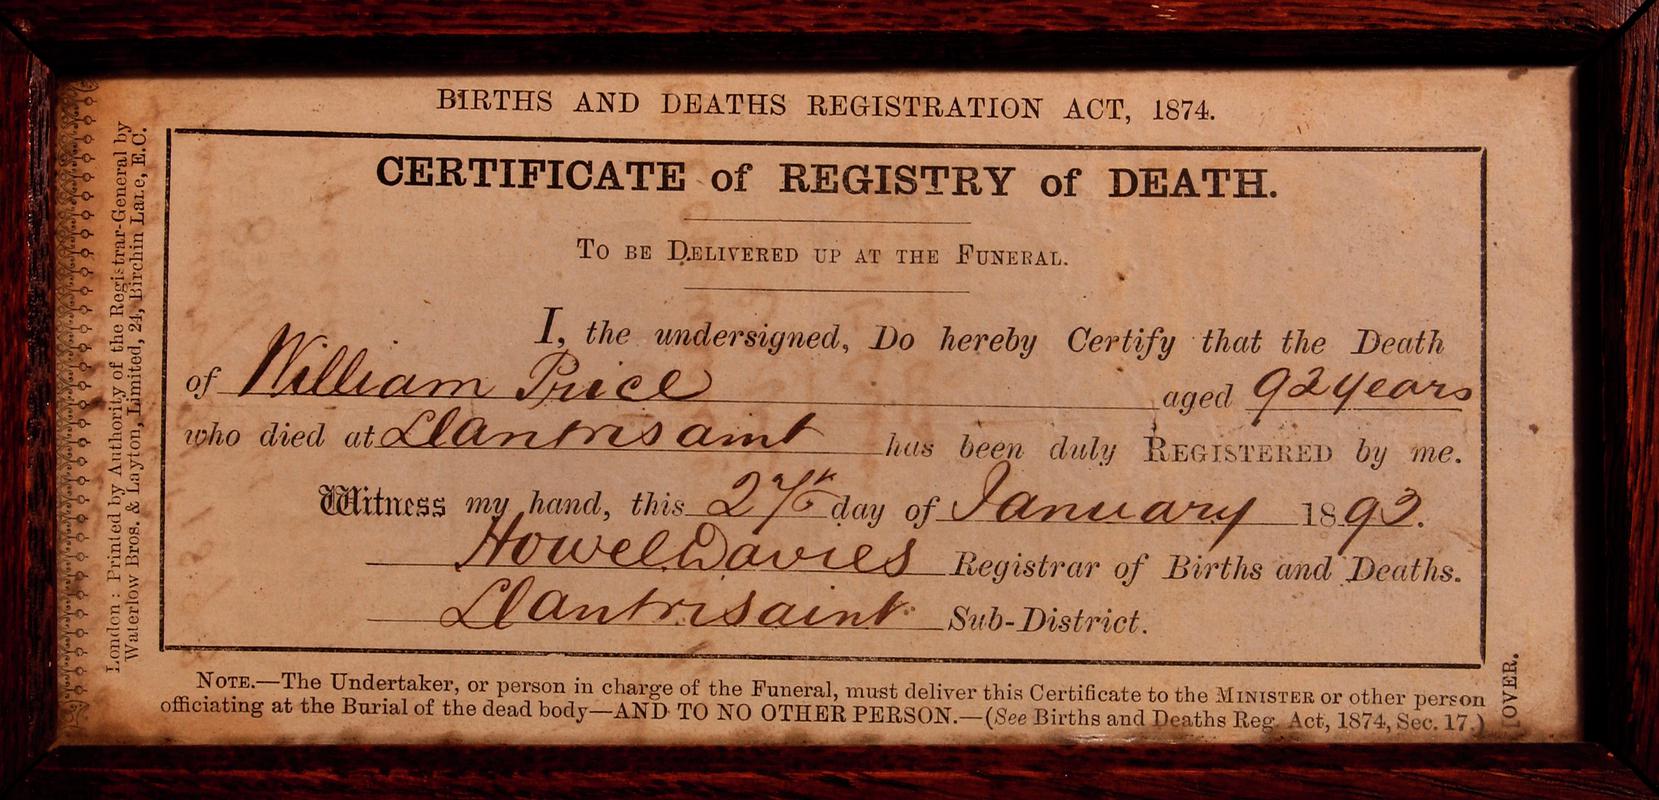 BIRTHS AND DEATHS REGISTRATION ACT, 1874.
CERTIFICATE of REGISTRY of DEATH.
TO BE DELIVERED UP AT THE FUNERAL.
I, the undersigned, Do hereby Certify that the Death
of William Price aged 92 years
who died at Llantrisaint has been duly REGISTERED by me.
Witness my hand, this 27th day of January 1893.
Howel Davies Registrar of Births and Deaths.
Llantrisaint Sub-District.
NOTE.—The Undertaker, or person in charge of the Funeral, must deliver this Certificate to the MINISTER or other person
officiating at the Burial of the dead body—AND TO NO OTHER PERSON.—(See Births and Deaths Reg. Act, 1874, Sec. 17.)
[OVER.
London: Printed by Authority of the Registrar-General by
Waterlow Bros. & Layton, Limited, 24, Birchin Lane, E.C.